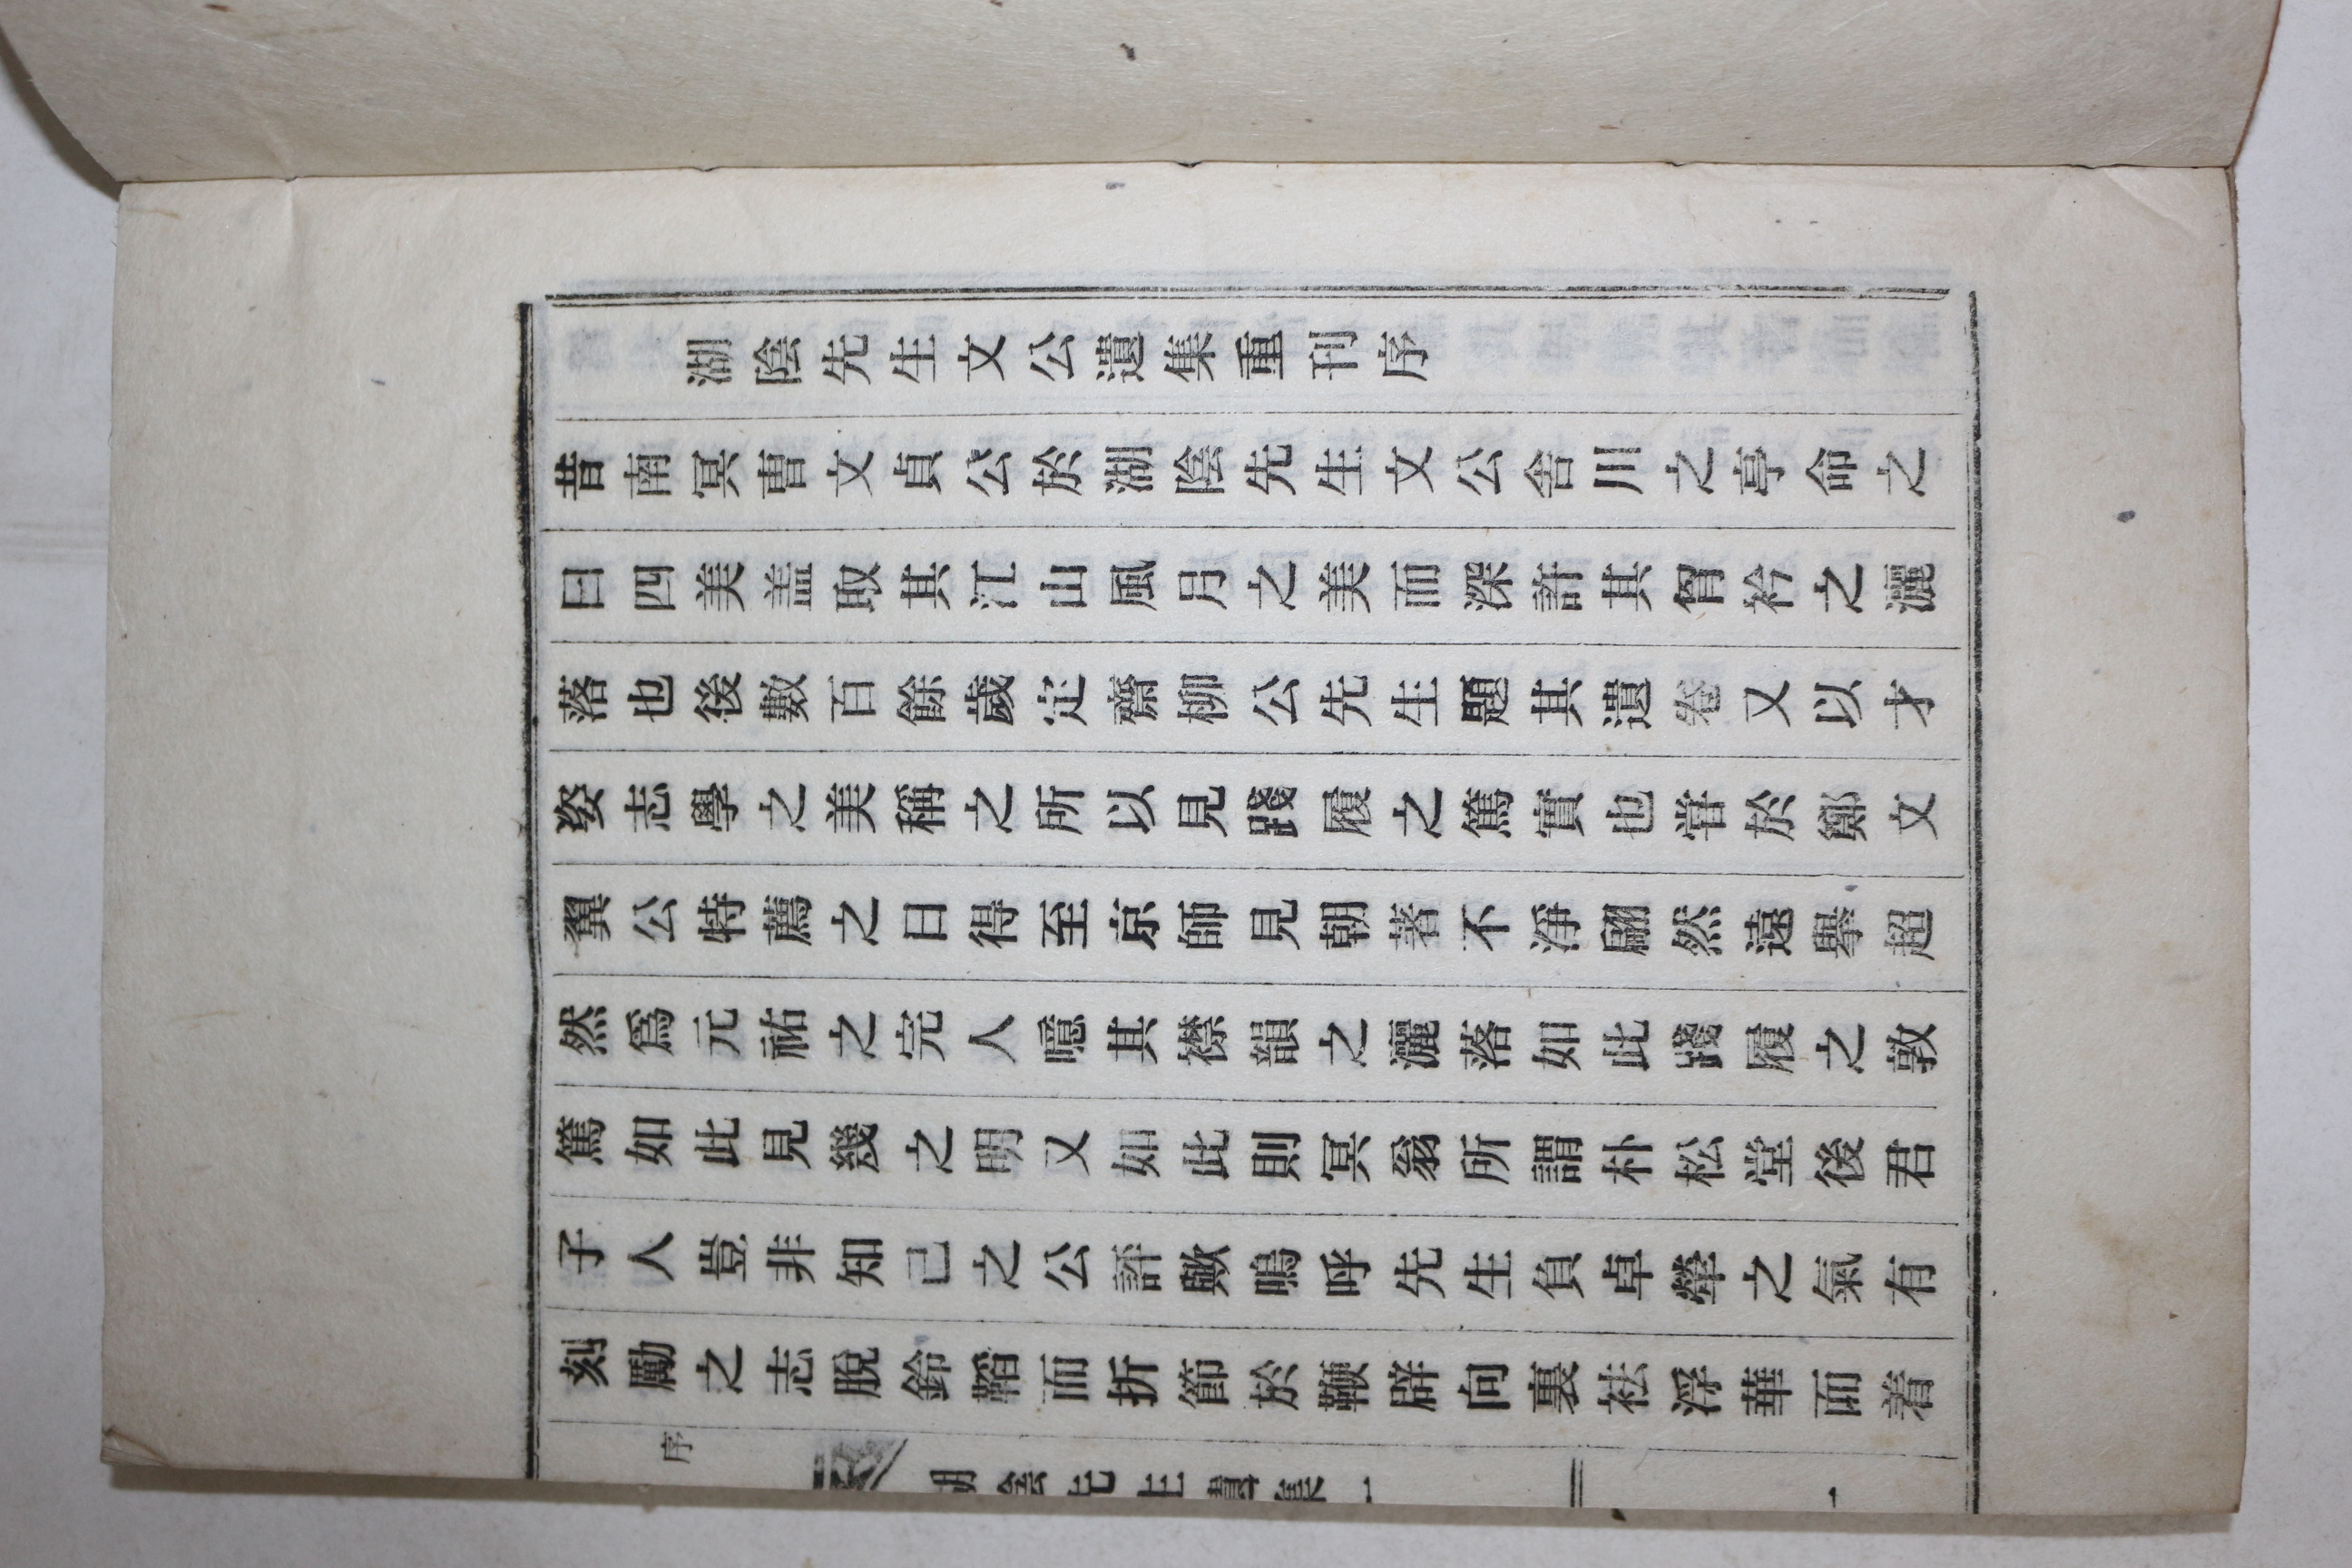 湖陰先生文公遺集重刊序
昔南冥曺文貞公於湖陰先生文公舍川之亭命之
曰四美盖取其江山風月之美而深許其胷衿之灑
落也後數百餘歲定齋柳公先生題其遺卷又以才
姿志學之美稱之所以見踐履之篤實也甞於鄭文
翼公特薦之日得至京師見朝著不淨翩然遠擧超
然爲元祐之完人噫其襟韻之灑落如此踐履之敦
篤如此見幾之明又如此則冥翁所謂朴松堂後君
子人豈非知己之公評歟嗚呼先生負卓犖之氣有
刻勵之志脫鈴韜而折節於鞭辟向裏袪浮華而着
序 湖陰先生遺集一 一